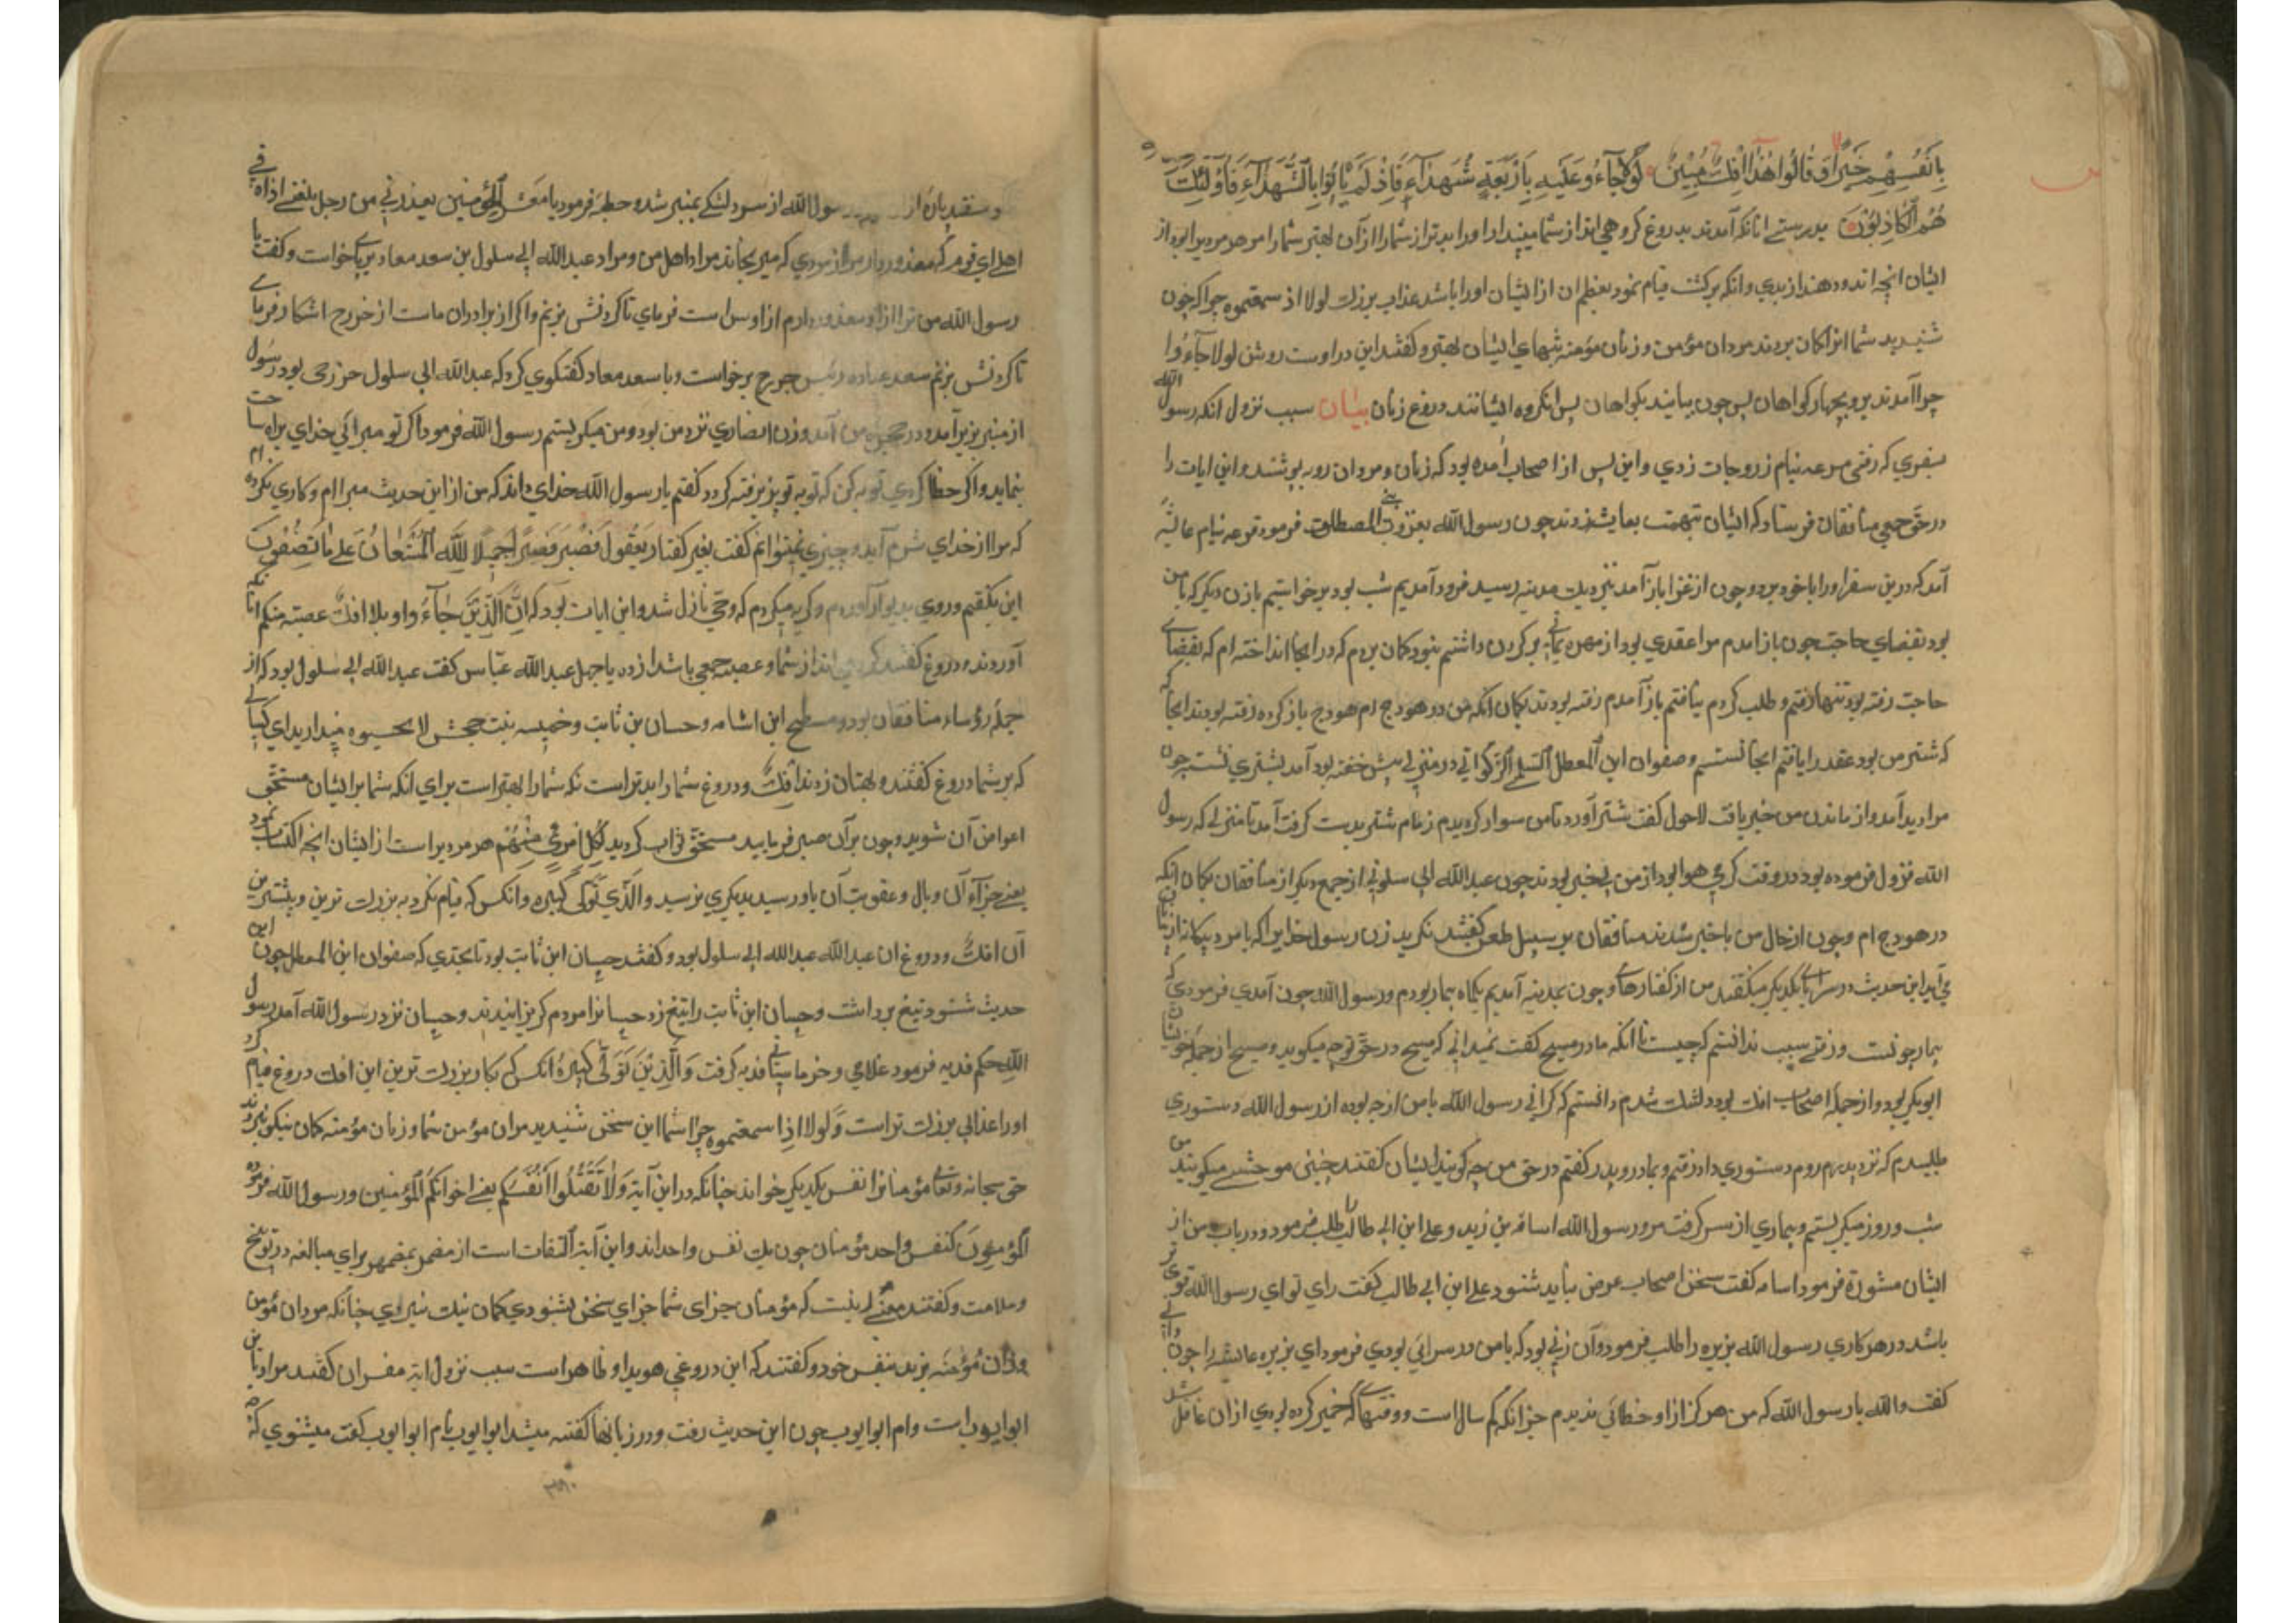 بِاَنْفُسِهِمْ خَيْرًا وَقَالُوا هٰذَا اِفْكٌ مُبِيْنٌ لَوْلَا جَآءُو عَلَيْهِ بِاَرْبَعَةِ شُهَدَآءَ فَاِذْ لَمْ يَأْتُوا بِالشُّهَدَآءِ فَاُولٰٓئِكَ
هُمُ الْكَاذِبُوْنَ بدرستے انانکه آمدند بدروغ کروهی اند از شما مپندارا اورا بدتر از شما را از آن بهتر شما را مر هر مردیرا بود از
ایشان انچه اندودهند از بدی وانکه برکشت قیام نمود بعظم ان از ایشان اورا باشد عذاب بزرک لولا اذ سمعتموه چرا که چون
شنیدید شما انرا کمان بردند مردان مؤمن وزنان مؤمنه بنهای ایشان بهتر وکفتند این دراوست روشن لولا جآءوا
چرا آمدند برو بچهار کواهان پس چون بیایند بکواهان پس انکروه ایشانند دروغ زنان بیان سبب نزول انکه رسول الله
بسفری که رفتی قرعه بنام زوجات زدی واین پس از اصحاب آمده بود که زنان ومردان رو بپوشند واین ایات را
در حق جمعی منافقان فرستاد که ایشان تهمت بعایشه زدند چون رسول الله بغزوه بنی المصطلق فرمود قرعه بنام عائشه
آمد که درین سفر اورا باخود برد وچون از غزا باز آمد نزدیک مدینه رسید فرود آمدیم شب بود برخواستیم بازن دیکر که بامن
بود بقضای حاجت چون باز آمدم مرا عقدی بود از مهره یمانی برکردن داشتم نبود کمان بردم که در انجا انداخته ام که بقضاے
حاجت رفته بود تنها رفتم وطلب کردم بیافتم باز آمدم رفته بودند بکمان انکه من در هودج ام هودج باز کرده رفته بودند انجا
که شتر من بود عقد را یافتم انجا نشستم وصفوان ابن المعطل السلمی الزکوانی در منزلی پیش خفته بود آمد بشتری نشست چون
مرا دید آمد واز ماندن من خبر یافت لاحول کفت شتر آورد تا من سوار کردیدم زمام شتر بدست کرفت آمد تا منزلی که رسول
الله نزول فرموده بود در وقت کرمی هوا بود از من بیخبر بودند چون عبدالله ابی سلولی از جمع دیکر از منافقان بکمان انکه
در هودج ام وچون از حال من باخبر شدند منافقان بر سبیل طعن کفتند نکرید زن رسول خدایرا که بامرد بیکانه از بیابان
می آید این حدیث در سراے بایکدیکر میکفتند من از کفتارهاے وچون بمدینه آمدیم یکماه بیمار بودم ورسول الله چون آمدی فرمودی که
بیمار چونست ورفتے سبب ندانستم که چیست تا آنکه مادر مسیح کفت نمیدانی که مسیح در حق تو چه میکوید ومسیح از جمله خویشان
ابوبکر بود واز جمله اصحاب افک بود دلتنک شدم دانستم که کرانی رسول الله بامن از چه بوده از رسول الله دستوری
طلبیدم که نزد پدرم روم دستوری داد رفتم وبمادر وپدر کفتم در حق من چه کویند ایشان کفتند چنین موحشے میکویند من
شب وروز میکریستم وبیماری از سر کرفت مرو رسول الله اسامه بن زید وعلی ابن ابی طالب را طلب فرمود ودر باب من از
ایشان مشوره فرمود اسامه کفت سخن اصحاب غرض نباید شنود علی ابن ابی طالب کفت رای تو ای رسول الله قوی تر
باشد در هر کاری رسول الله بریره را طلب فرمود وآن زنی بود که بامن در سرائی بودی فرمود ای بریره عایشه را چون دانی
کفت والله یا رسول الله که من هرکز از او خطائی ندیدم جز انکه کم سال است ووقتهاے که خمیر کرده بودی از ان غافل شد
رسول الله از سر دلتنکے بمنبر شد وخطبه فرمود یا معشر المؤمنین یعذرنی من رجل بلغنے اذاه فی
اهلی ای قوم که معذور دارد مرا از مردی که میرنجاند مرا در اهل من ومراد عبدالله ابی سلول بن سعد معاد برپاے خواست وکفت یا
رسول الله من ترا از او معذور دارم از اوس است فرمای تا کردنش بزنم واکر از برادران ماست از خزرج اشکار فرماے
تا کردنش بزنم سعد عباده رئیس خزرج برخواست وبا سعد معاد کفتکوی کرد که عبدالله ابی سلول خزرجی بود رسول
از منبر بزیر آمد ودر حجره من آمد وزن انصاری نزد من بود ومن میکریستم رسول الله فرمود اکر تو مبرائی خدای براءت
بنماید واکر خطا کردی توبه کن که توبه تو پذیرفته کردد کفتم یا رسول الله خدای داند که من از این حدیث مبرا ام وکاری نکرده ام
که مرا از خدای شرم آید وچیزی نمیتوانم کفت بغیر کفتار یعقوب فَصَبْرٌ جَمِيْلٌ اللّٰهُ الْمُسْتَعَانُ عَلٰى مَا تَصِفُوْنَ
این بکفتم وروی بدیوار آوردم وکریه میکردم که وحی نازل شد واین ایات بود که اِنَّ الَّذِيْنَ جَآءُوا بالافك عصبة منكم
آوردند دروغ کفتند کروهی اند از شما وعصبه جمعی باشد از ده تا چهل عبدالله عباس کفت عبدالله ابی سلول بود که از
جمله رؤساء منافقان بود ومسطح ابن اثاثه وحسان بن ثابت وحمیسه بنت جحش لا تحسبوه مپندارید ای کسانے
که بر شما دروغ کفتند وبهتان زدند افک ودروغ شما را بدتر است بلکه شما را بهتر است برای انکه شما بر ایشان مستحق
اعواض آن شوید وچون برآن صبر فرمایید مستحق ثواب کردید لِكُلِّ امْرِئٍ مِنْهُمْ هر مرد یرا است از ایشان انچه اکتساب نمود
یعنے جزآء آن وبال وعقوبت آن باو رسید بدیکری نرسید وَالَّذِي تَوَلّٰى كِبْرَهُ وانکس که قیام نکرد به بزرک ترین وبیشترین
آن افک ودروغ ان عبدالله عبدالله ابی سلول بود وکفتند حسان ابن ثابت بود تا بحدی که صفوان ابن المعطل چون این
حدیث شنود تیغ برداشت وحسان ابن ثابت را تیغ زد حسانرا مردم کریزانیدند وحسان نزد رسول الله آمد رسول
الله حکم فدیه فرمود غلامی وخرماستانی فدیه کرفت وَالَّذِيْنَ تَوَلّٰى كِبْرَهُ انکس که بکار بزرک ترین این افک دروغ قیام کرد
اورا عذابی بزرک تر است وَلَوْلَا اِذْ سمعتموه چرا شما این سخن شنیدید مردان مؤمن شما وزنان مؤمنه کمان نیکو نبردند
حق سبحانه وتعالی مؤمنانرا نفس یکدیکر خواند چنانکه در این آیة وَلَا تَقْتُلُوا اَنْفُسَكُمْ یعنے اخوانکم المؤمنین ورسول الله فرموده
المؤمنون کنفس واحد مؤمنان چون یک نفس واحد اند واین آیة التفات است از مضمر بمضمر برای مبالغه در توبیخ
وملامت وکفتند معنے اینست که مؤمنان جزای شما جزای سخن بشنودی کمان نیک نبردی چنانکه مردان مؤمن
وزنان مؤمنه برند بنفس خود وکفتند که این دروغی هویدا وظاهر است سبب نزول ایة مفسران کفتند مراد باین
ابوایوب است وام ابوایوب چون این حدیث رفت ودر زبانها کفته میشد ابوایوب بام ابوایوب کفت میشنوی که چه